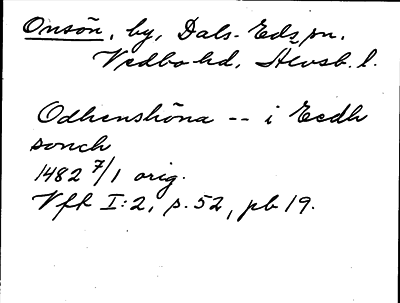 Onsön, by, Dals-Eds sn.
Vedbo hd, Älvsb. l.
Odhenshöna -- i Eedh
sonch
1482 7/1 orig.
Vfh I:2, s. 52, pb 19.